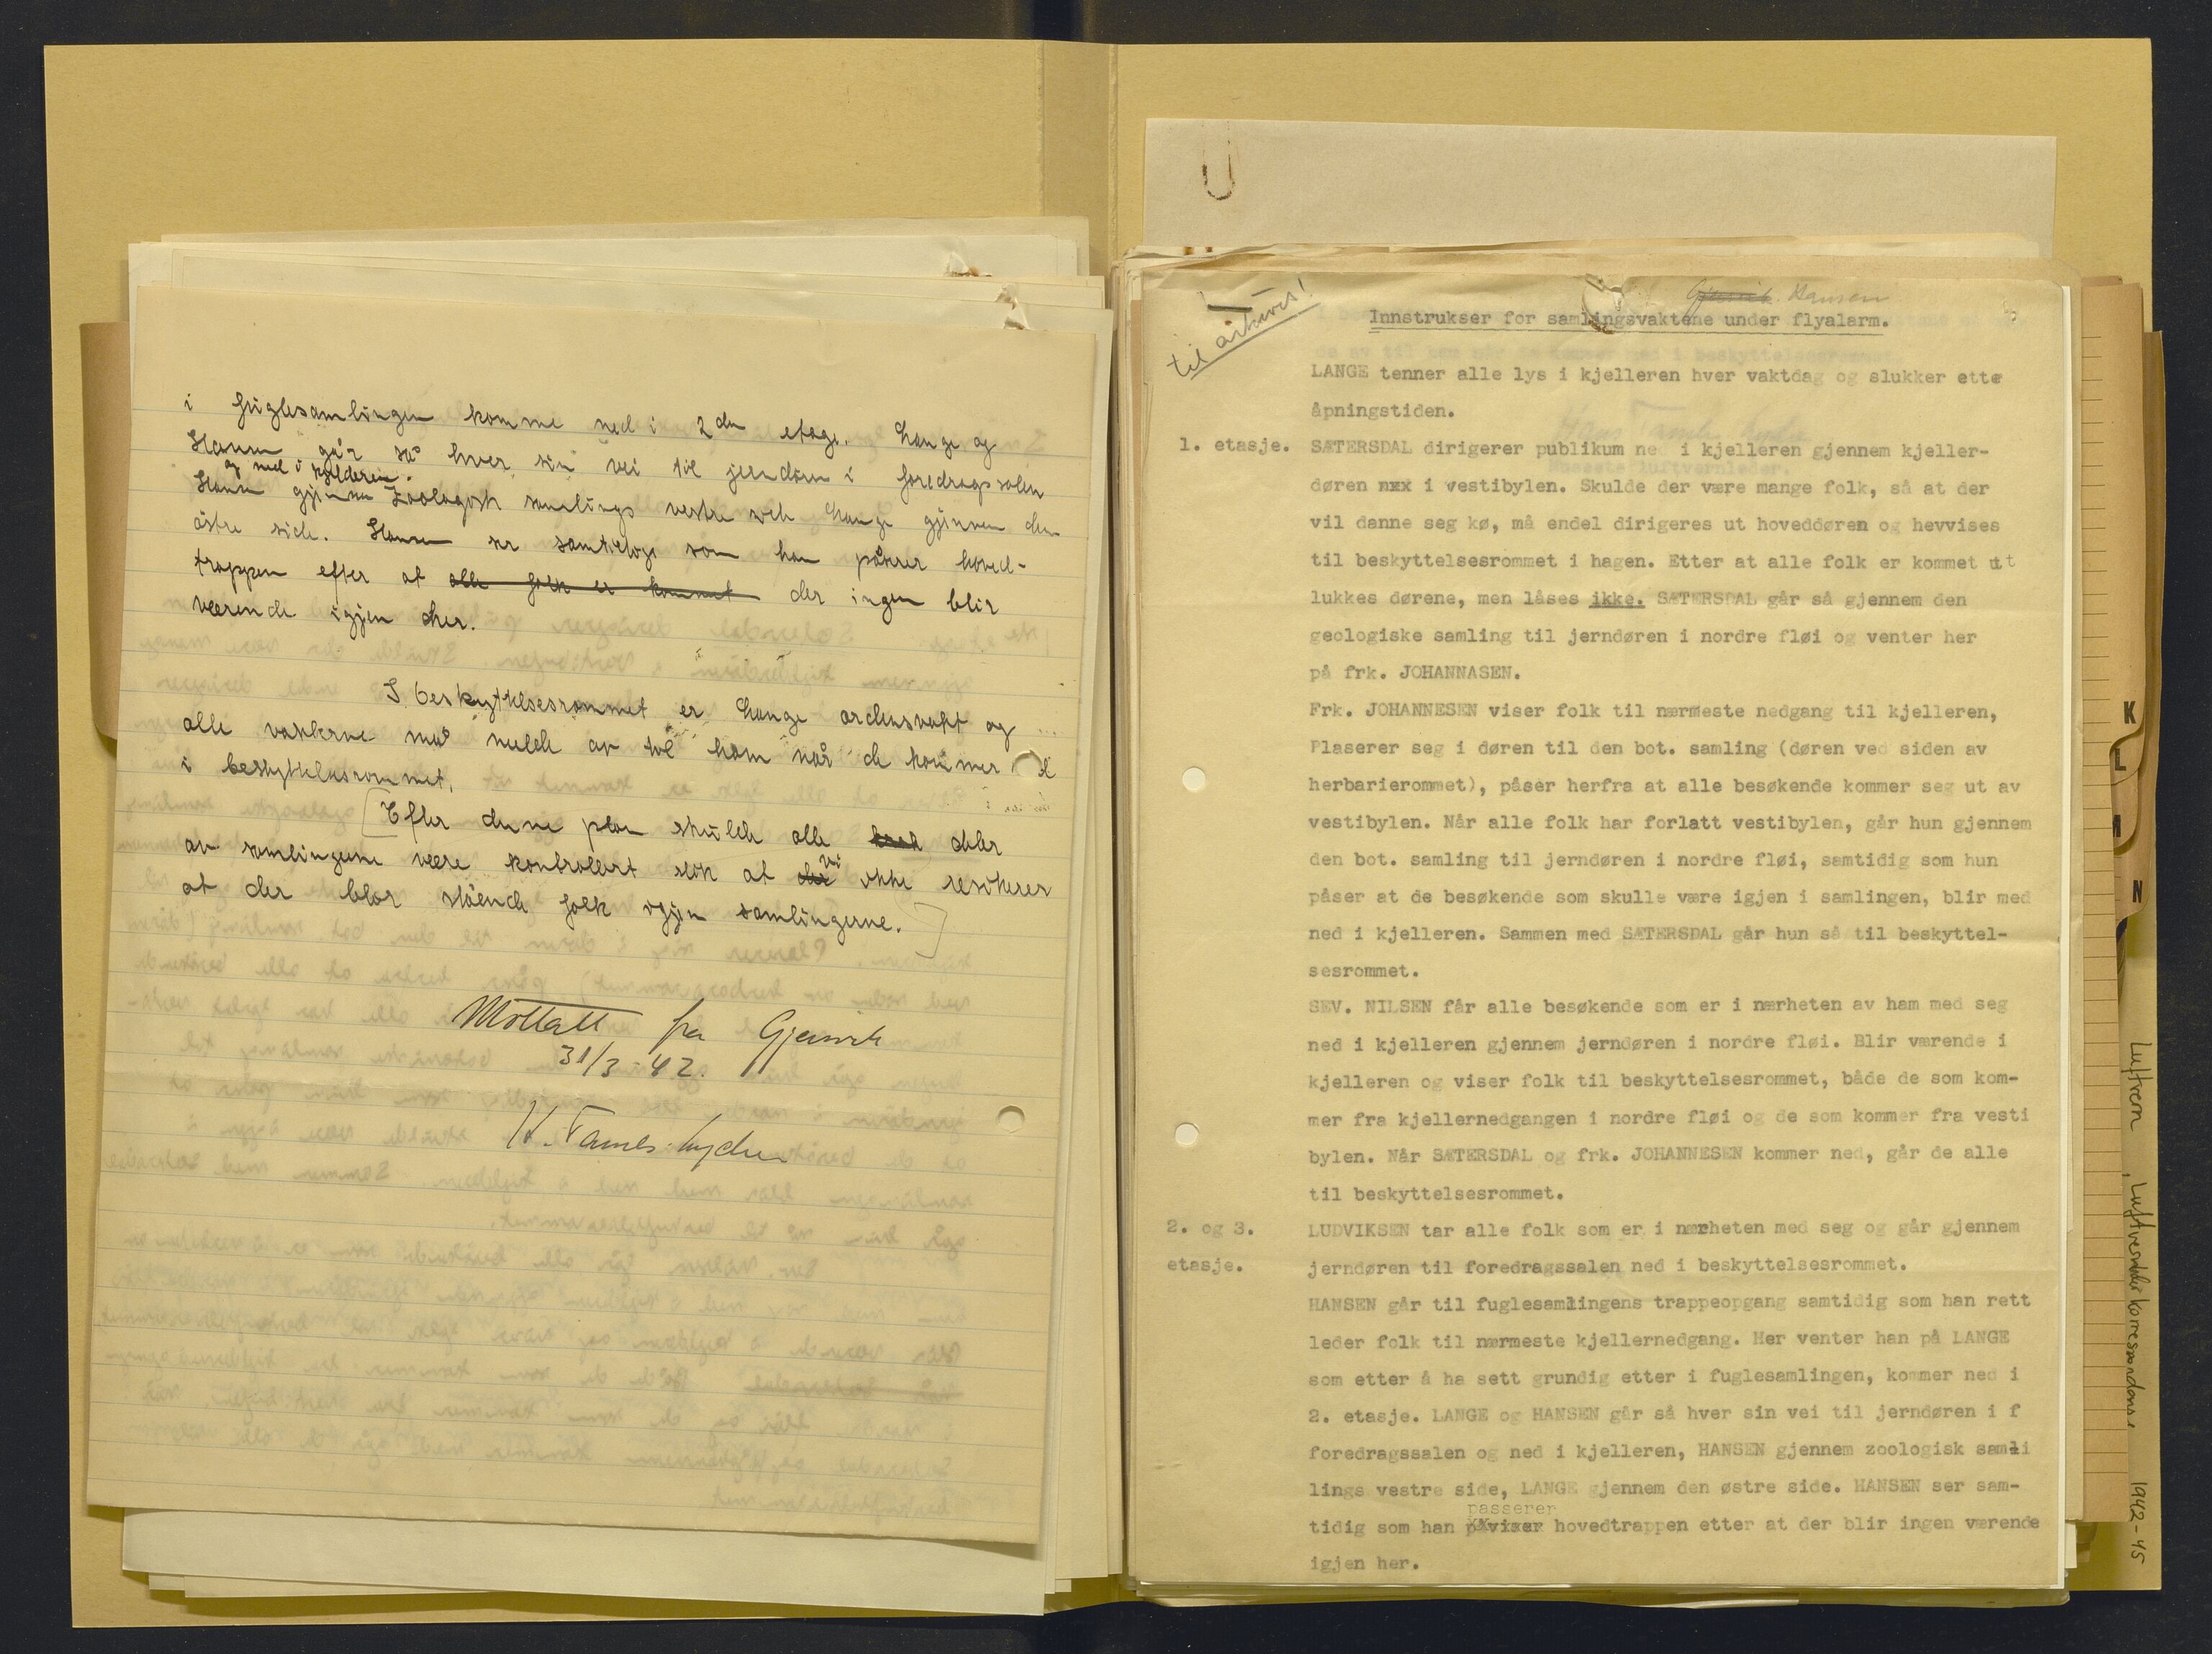 i fuglesamlingen komme ned i 2den etage. Lange og
Hansen går så hver sin vei til jerndøren i foredragssalen
og ned i kjelderen.
Hansen gjennem Zoologisk samlings vestre side Lange gjennem den
østre side. Hansen ser samtidige som han påsser hoved-
trappen efter at alle folk er kommet der ingen blir
værende igjen her.
I beskyttelsesrommet er Lange ordensvakt og
alle vakterne må melde av til ham når de kommer
i beskyttelsesrommet.
[Efter denne plan skulde alle deler
av samlingerne være kontrollert slik at der vi ikke resikerer
at der blir stående folk igjen samlingerne.]
Mottatt fra Gjersvik
31/3-42.
H. Tambs-Lyche
til arkivet!
Gjersvik. Hansen
Innstrukser for samlingsvaktene under flyalarm.
LANGE tenner alle lys i kjelleren hver vaktdag og slukker ette
åpningstiden.
1. etasje. SÆTERSDAL dirigerer publikum ned i kjelleren gjennem kjeller-
døren nxx i vestibylen. Skulde der være mange folk, så at der
vil danne seg kø, må endel dirigeres ut hoveddøren og hevvises
til beskyttelsesrommet i hagen. Etter at alle folk er kommet ut
lukkes dørene, men låses ikke. SÆTERSDAL går så gjennem den
geologiske samling til jerndøren i nordre fløi og venter her
på frk. JOHANNASEN.
Frk. JOHANNESEN viser folk til nærmeste nedgang til kjelleren,
Plaserer seg i døren til den bot. samling (døren ved siden av
herbarierommet), påser herfra at alle besøkende kommer seg ut av
vestibylen. Når alle folk har forlatt vestibylen, går hun gjennem
den bot. samling til jerndøren i nordre fløi, samtidig som hun
påser at de besøkende som skulle være igjen i samlingen, blir med
ned i kjelleren. Sammen med SÆTERSDAL går hun så til beskyttel-
sesrommet.
SEV. NILSEN får alle besøkende som er i nærheten av ham med seg
ned i kjelleren gjennem jerndøren i nordre fløi. Blir værende i
kjelleren og viser folk til beskyttelsesrommet, både de som kom-
mer fra kjellernedgangen i nordre fløi og de som kommer fra vesti
bylen. Når SÆTERSDAL og frk. JOHANNESEN kommer ned, går de alle
til beskyttelsesrommet.
2. og 3. LUDVIKSEN tar alle folk som er i nærheten med seg og går gjennem
etasje. jerndøren til foredragssalen ned i beskyttelsesrommet.
HANSEN går til fuglesamlingens trappeopgang samtidig som han rett
leder folk til nærmeste kjellernedgang. Her venter han på LANGE
som etter å ha sett grundig etter i fuglesamlingen, kommer ned i
2. etasje. LANGE og HANSEN går så hver sin vei til jerndøren i f
foredragssalen og ned i kjelleren, HANSEN gjennem zoologisk samli
lings vestre side, LANGE gjennem den østre side. HANSEN ser sam-
passerer
tidig som han påviser hovedtrappen etter at der blir ingen værende
igjen her.
K
L
N
Luftvern, Luftvernleder korrespondanse 1942-45